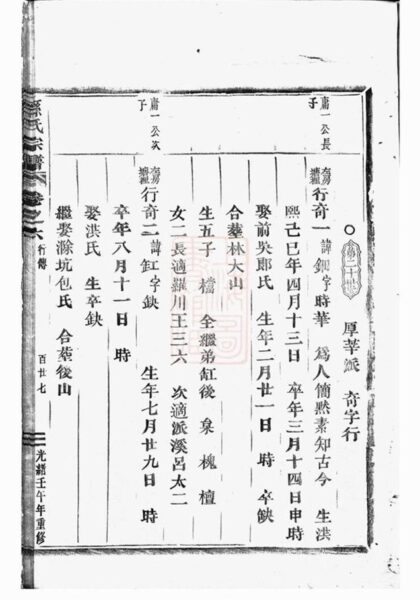 第二十世 厚莘派 奇字行
庸一公長子
行奇一 諱鈿 字時華 爲人簡默素知古今 生洪
熙己巳年四月十三日 卒年三月十四日申時
娶前吳郎氏 生年二月廿一日 時 卒缺
合葬林大山
生五子 檔 全繼弟缸後 泉 槐 檀
女二長適羅川王三六 次適派溪呂太二
庸一公次子
行奇二 諱缸 字缺 生年七月廿九日 時
卒年八月十一日 時
娶洪氏 生卒缺
繼娶滁坑包氏 合葬後山
孫氏宗譜 卷之六 行傳 百廿七 光緒壬午年重修